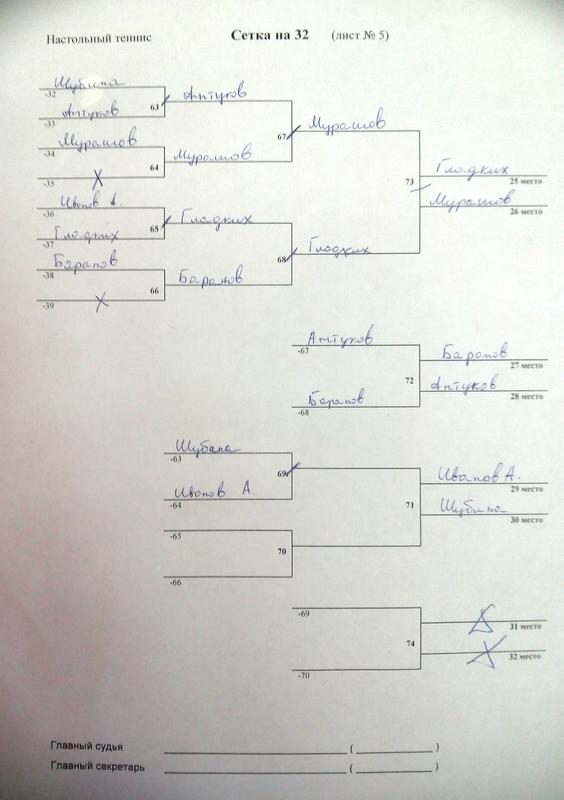 Настольный теннис Сетка на 32 (лист № 5)
Шубина
-32
63 Антуков
Антуков
-33
67 Мурашов
Мурашов
-34
64 Мурашов
X
-35
73 Гладких
25 место
Мурашов
26 место
Иванов А.
-36
65 Гладких
Гладких
-37
68 Гладких
Баранов
-38
66 Баранов
X
-39
Антуков
-67
72 Баранов
27 место
Антуков
28 место
Баранов
-68
Шубина
-63
69
Иванов А.
-64
71 Иванов А.
29 место
Шубина
30 место
-65
70
-66
-69
74
31 место
32 место
-70
Главный судья ( )
Главный секретарь ( )